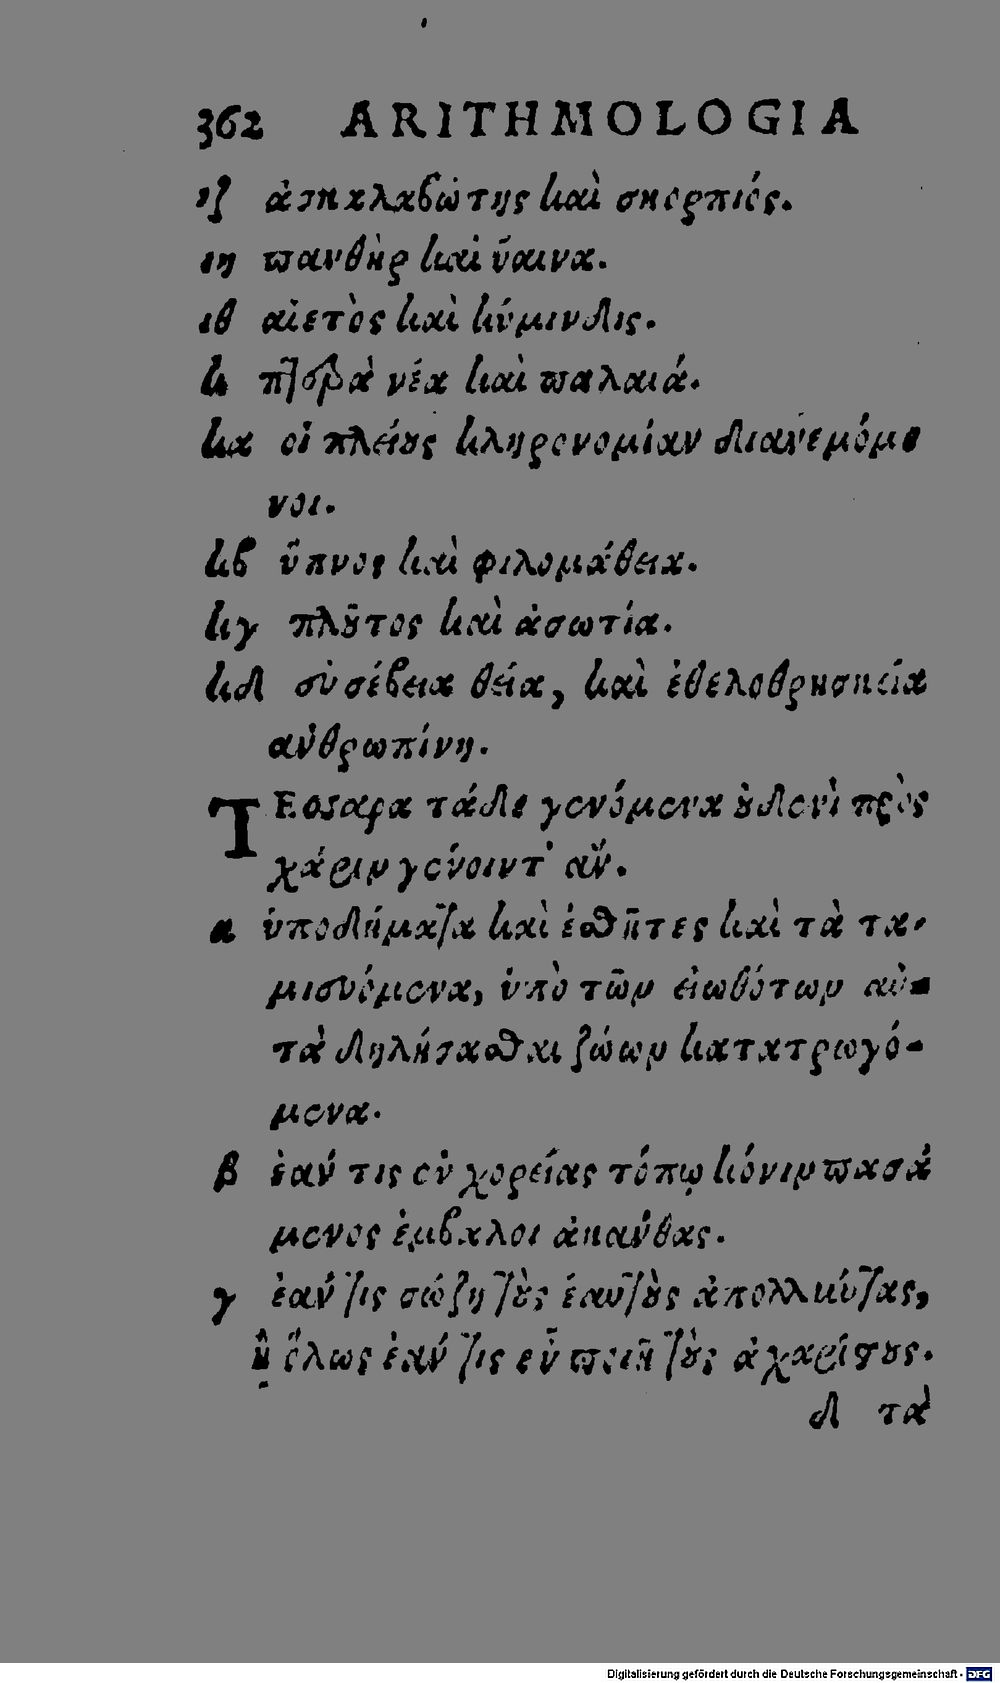 362 ARITHMOLOGIA
ιζ ἀσκαλαβώτης καὶ σκορπιός.
ιη πανθὴρ καὶ ὕαινα.
ιθ αἰετὸς καὶ κύμινδις.
κ νέα καὶ παλαιά.
κα οἱ πλείους κληρονομίαν διανεμόμε
νοι.
κβ ὕπνος καὶ φιλομάθεια.
κγ πλοῦτος καὶ ἀσωτία.
κδ εὐσέβεια θεία, καὶ ἐθελοθρησκεία
ἀνθρωπίνη.
ΤΕσσαρα τάδε γενόμενα οὐδενὶ πρὸς
χάριν γένοιντ' ἄν.
α ὑποδήματα καὶ ἐσθῆτες καὶ τὰ τα-
μιευόμενα, ὑπὸ τῶν εἰωθότων αὐ-
τὰ δηλήσασθαι ζώων κατατρωγό-
μενα.
β ἐάν τις ἐν χορείας τόπῳ κόνιν πασά
μενος ἐμβάλοι ἀκάνθας.
γ ἐάν τις σώζῃ τοὺς ἑαυτοὺς ἀπολλύντας,
ἢ ὅλως ἐάν τις εὖ ποιῇ τοὺς ἀχαρίστους.
δ τὰ
Digitalisierung gefördert durch die Deutsche Forschungsgemeinschaft - DFG